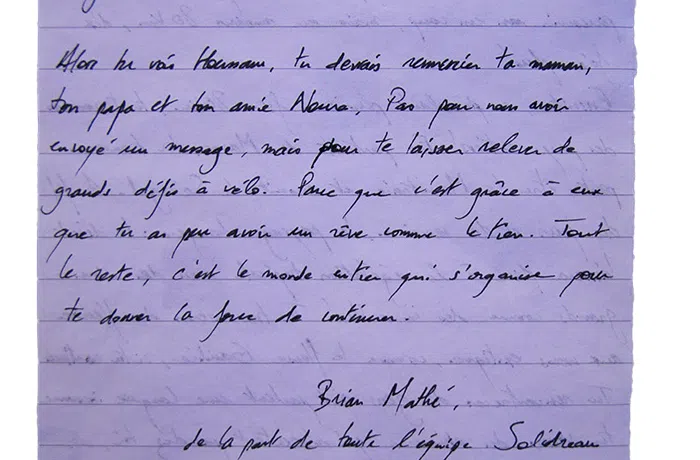 Alors tu vois Houssam, tu devais remercier ta maman,
ton papa et ton amie Noura. Pas pour nous avoir
envoyé un message, mais pour te laisser relever de
grands défis à vélo. Parce que c'est grâce à eux
que tu as pu avoir un rêve comme le tien. Tout
le reste, c'est le monde entier qui s'organise pour
te donner la force de continuer.
Brian Mathé,
de la part de toute l'équipe Solidream